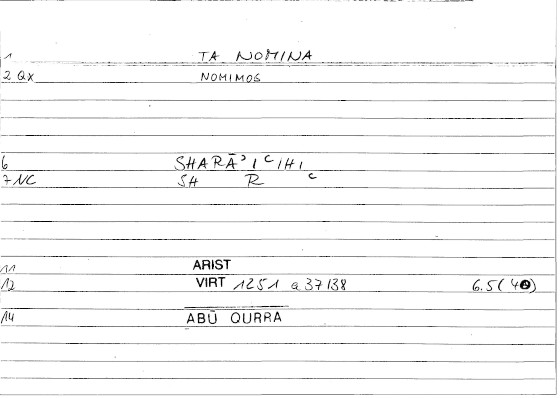 1 TA NOMINA
2 QX NOMIMOS
6 SHARĀʾIʿIHI
7 NC SH R ʿ
11 ARIST
12 VIRT 1251 a 37/38 6.5(40)
14 ABŪ QURRA